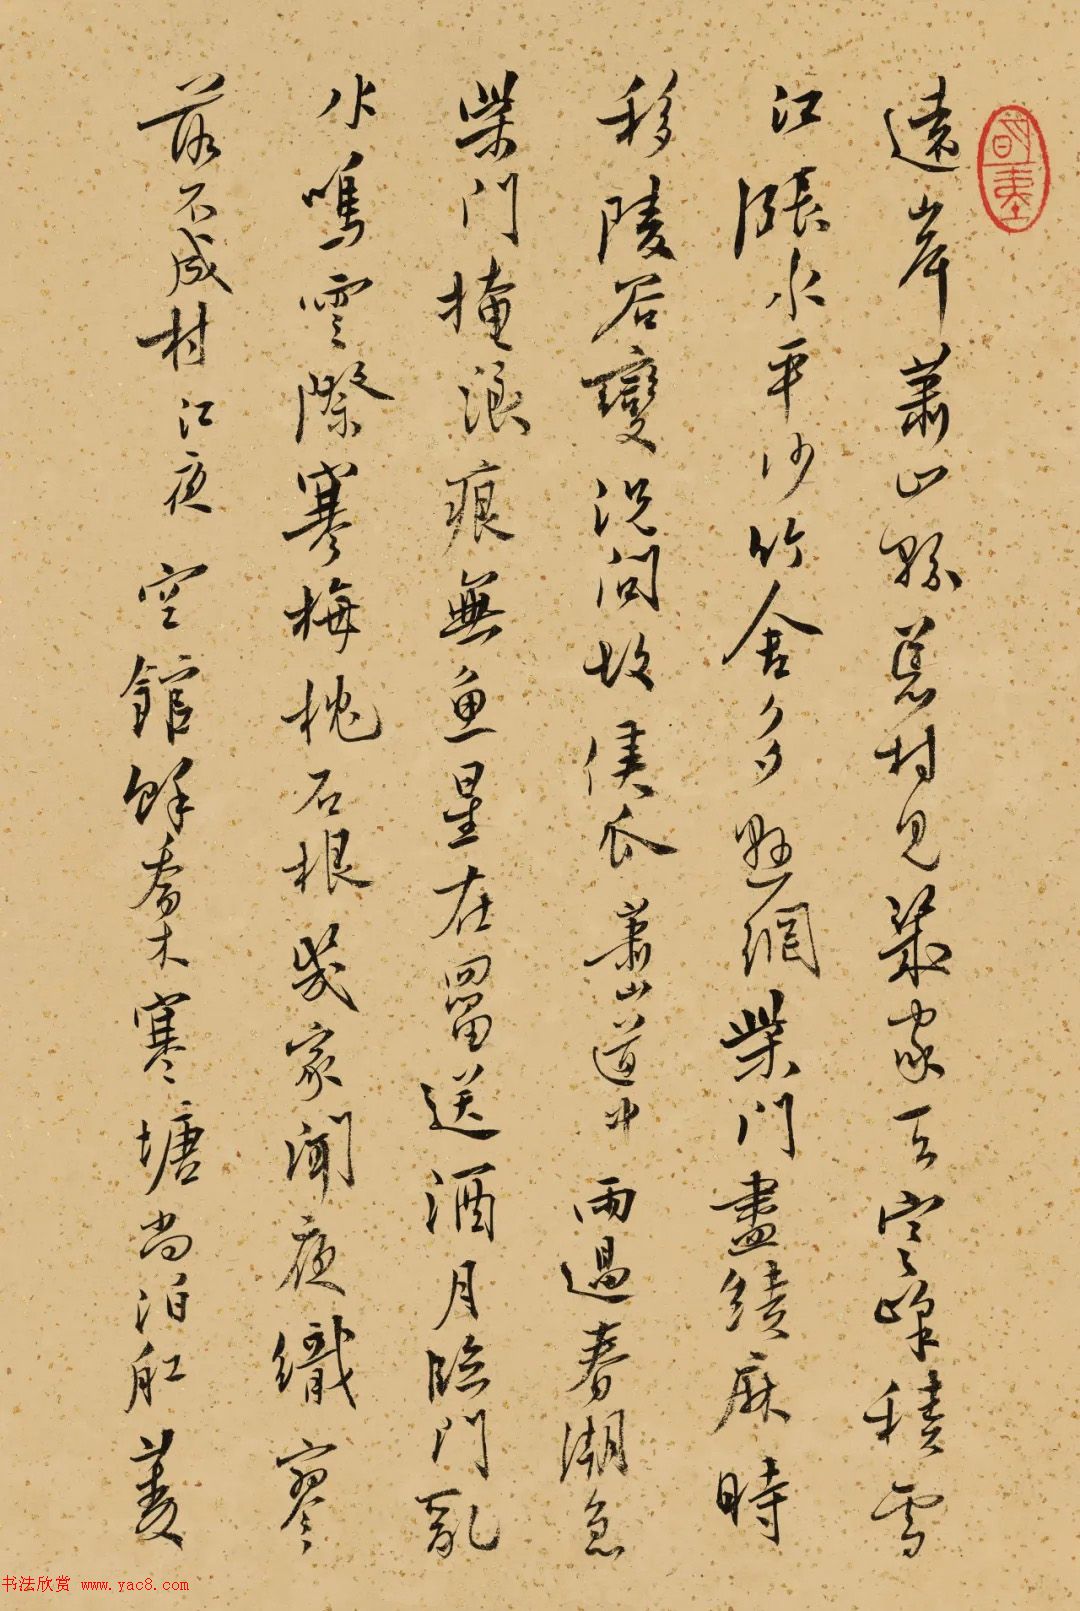 遠岸蕭山縣荒村見幾家天寒峰積雪
江漲水平沙竹舍多懸網柴門盡績麻時
移陵谷變況問故侯瓜 蕭山道中 雨過春潮急
柴門掩浪痕無魚星在罶送酒月臨門亂
水鳴雲際寒梅梚石根幾家聞夜織寥
落不成村 江夜 空館餘喬木寒塘尚泊舡菱
书法欣赏 www.yac8.com